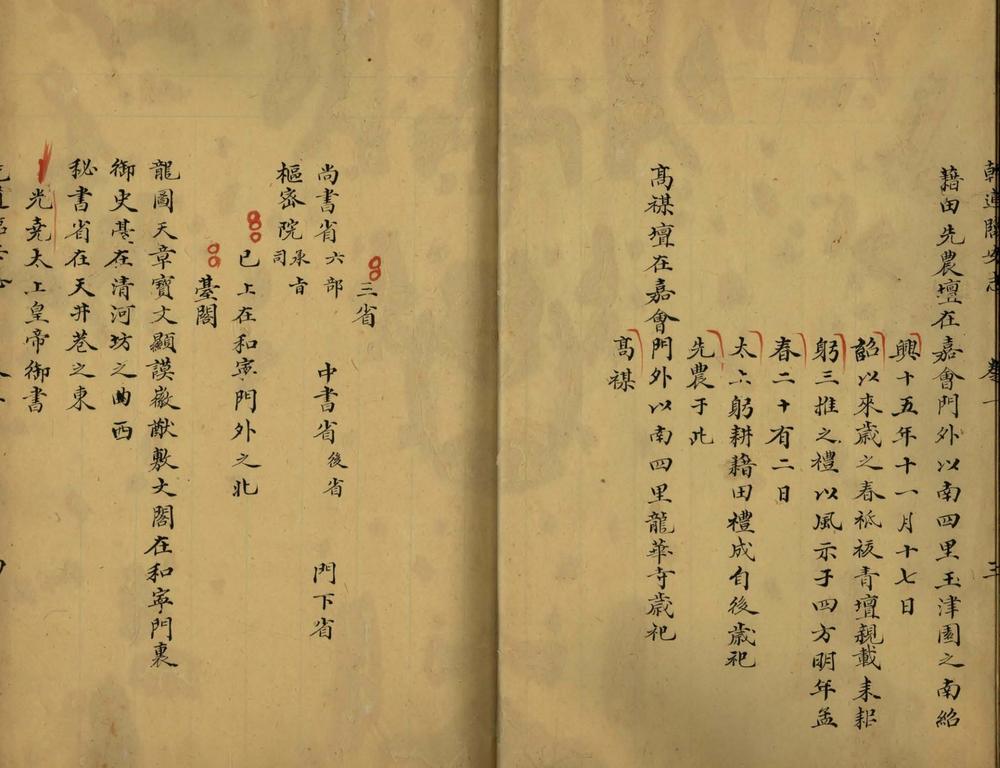 乾道臨安志 卷一 三
籍田先農壇在嘉會門外以南四里玉津園之南紹
興十五年十一月十七日
詔以來歲之春祗祓青壇親載耒耜
躬三推之禮以風示于四方明年孟
春二十有二日
太上躬耕籍田禮成自後歲祀
先農于此
高禖壇在嘉會門外以南四里龍華寺歲祀
高禖
三省
尚書省六部 中書省後省 門下省
樞密院承旨司
已上在和寧門外之北
臺閣
龍圖天章寶文顯謨徽猷敷文閣在和寧門裏
御史臺在清河坊之曲西
秘書省在天井巷之東
光堯太上皇帝御書